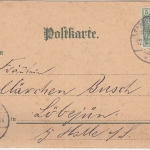 Postkarte.
An
Fräulein
Klärchen Busch
Löbejün
b/ Halle a/S.